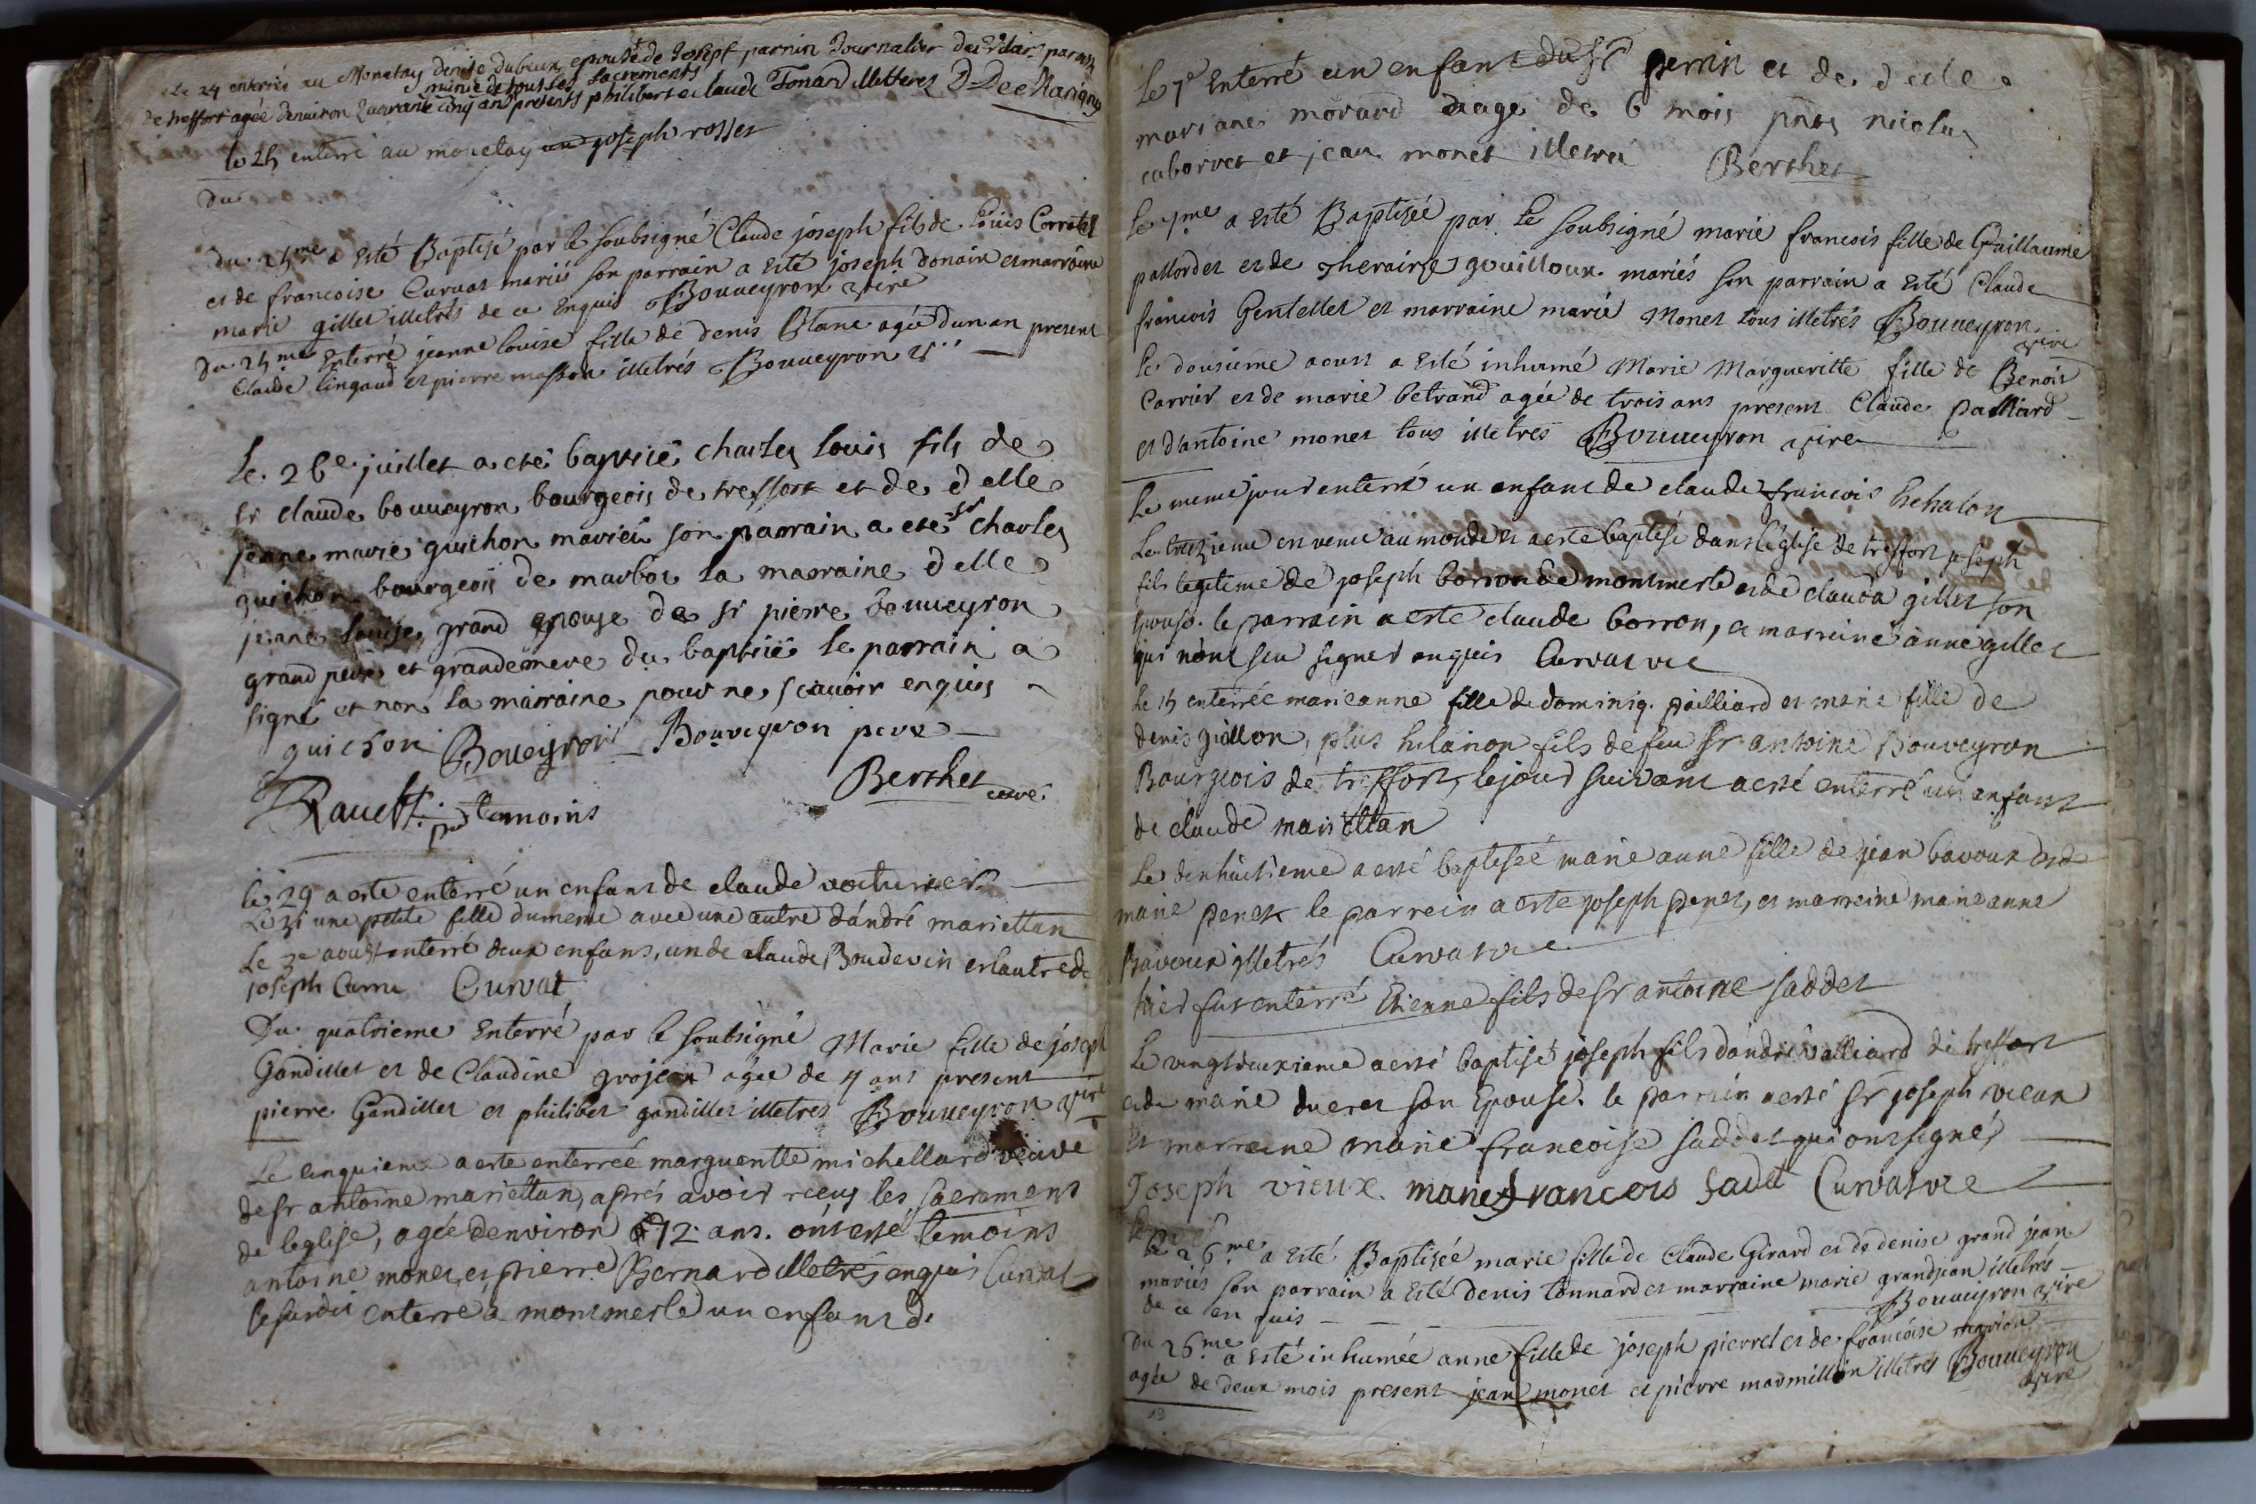 Le 24 enterré au Monetay Denise Dubieux epouse de Joseph parnin Journalier
munie de tous les sacrements
de treffort agée denviron quarante cinq ans presents philibert et claude Tonard illetteres
le 25 enterré au monetay joseph rosset
Du
Du 25me a Esté Baptisé par le soubsigné Claude joseph fils de Louis
et de francoise Curvat mariés son parrain a Esté joseph Donain et marraine
marie gillet illetrés de ce Enquis Bouveyron vire
Du 25me Enterré jeanne louise fille de denis Blanc agée dun an present
Claude lingaud et pierre masson illetrés Bouveyron
Le 26e juillet a eté baptisé charles louis fils de
sr claude bouveyron bourgeois de treffort et de delle
jeane marie guichon mariés son parrain a eté sr charles
guichon bourgeois de marboz la marraine delle
jeane louise grand epouse de sr pierre bouveyron
grand pere et grande mere du baptisé le parrain a
signé et non la marraine pour ne scavoir enquis
guichon Boueyron Bouveyron pere
Berthet curé
temoins
le 29 a esté enterré un enfant de claude voiturier
Le 31 une petite fille du meme avec une autre d'andré mariettan
Le 3e aoust enterré deux enfans, un de claude Boudevin et lautre de
joseph Carru Curvat
Du quatrieme Enterré par le soubsigné Marie fille de joseph
Gandillet et de Claudine grosjean agée de 4 ans present
pierre Gandillet et philibet gandillet illetres Bouveyron vire
Le cinquieme a esté enterrée margueritte michellard veuve
de sr antoine mariettan, aprés avoir receu les sacremens
de leglise, agée denviron 72 ans. ont esté temoins
antoine monet, et pierre Bernard illetrés enquis Curvat
le susdit enterré à montmerle un enfant de
Le 7e Enterré un enfant du sr perrin et de delle
mariane morard agé de 6 mois pnts nicolas
caborvet et jean monet illetré Berthet
Le 7me a Esté Baptisée par Le soubsigné marie francois fille de Guillaume
pallordet et de gouilloux mariés son parrain a Esté Claude
francois Gentellet et marraine marie Monet tous illetrés Bouveyron
vire
Le dousieme aoust a Esté inhumé Marie Margueritte fille de Benoit
Carrier et de marie betrand agée de trois ans present Claude palliard
et d'antoine monet tous illetres Bouveyron vire
Le meme jour enterré un enfant de claude francois
Le treizieme est venu au monde et a esté baptisé dans l'église de treffort joseph
fils legitime de joseph borron de montmerle et de clauda gillet son
Epouse. le parrain a esté claude borron, et marreine anne gillet
qui n'ont seu signer enquis Curvat vre
Le 15 enterrée marieanne fille de dominiq. pailliard et marie fille de
denis giollon, plus hilarion fils de feu sr antoine Bouveyron
Bourgeois de treffort, le jour suivant a esté enterré un enfant
de claude mariettan
Le dixhuitieme a esté baptisée marie anne fille de jean bavoux et de
marie penet le parrein a esté joseph penet, et marreine marieanne
Bavoux illetrés Curvat vre
hier fut enterré Etienne fils de sr antoine saddet
Le vingtdeuxieme a esté baptisé joseph fils d'andré valliard de treffort
et de marie ducret son Epouse. le parrein a esté sr joseph vieux
et marreine marie francoise saddet qui ont signé
Joseph vieux. marie francois sadet Curvat vre
Le 26me a Esté Baptisée marie fille de Claude Girard et de denise grand jean
mariés son parrain a Esté Denis tonnard et marraine marie grandjean illetrés
de ce en quis Bouveyron vire
Du 26me a Esté inhumée anne fille de joseph pierrel et de francoise marion
agée de deux mois present jean monet et pierre marmillon illetrés Bouveyron
vire